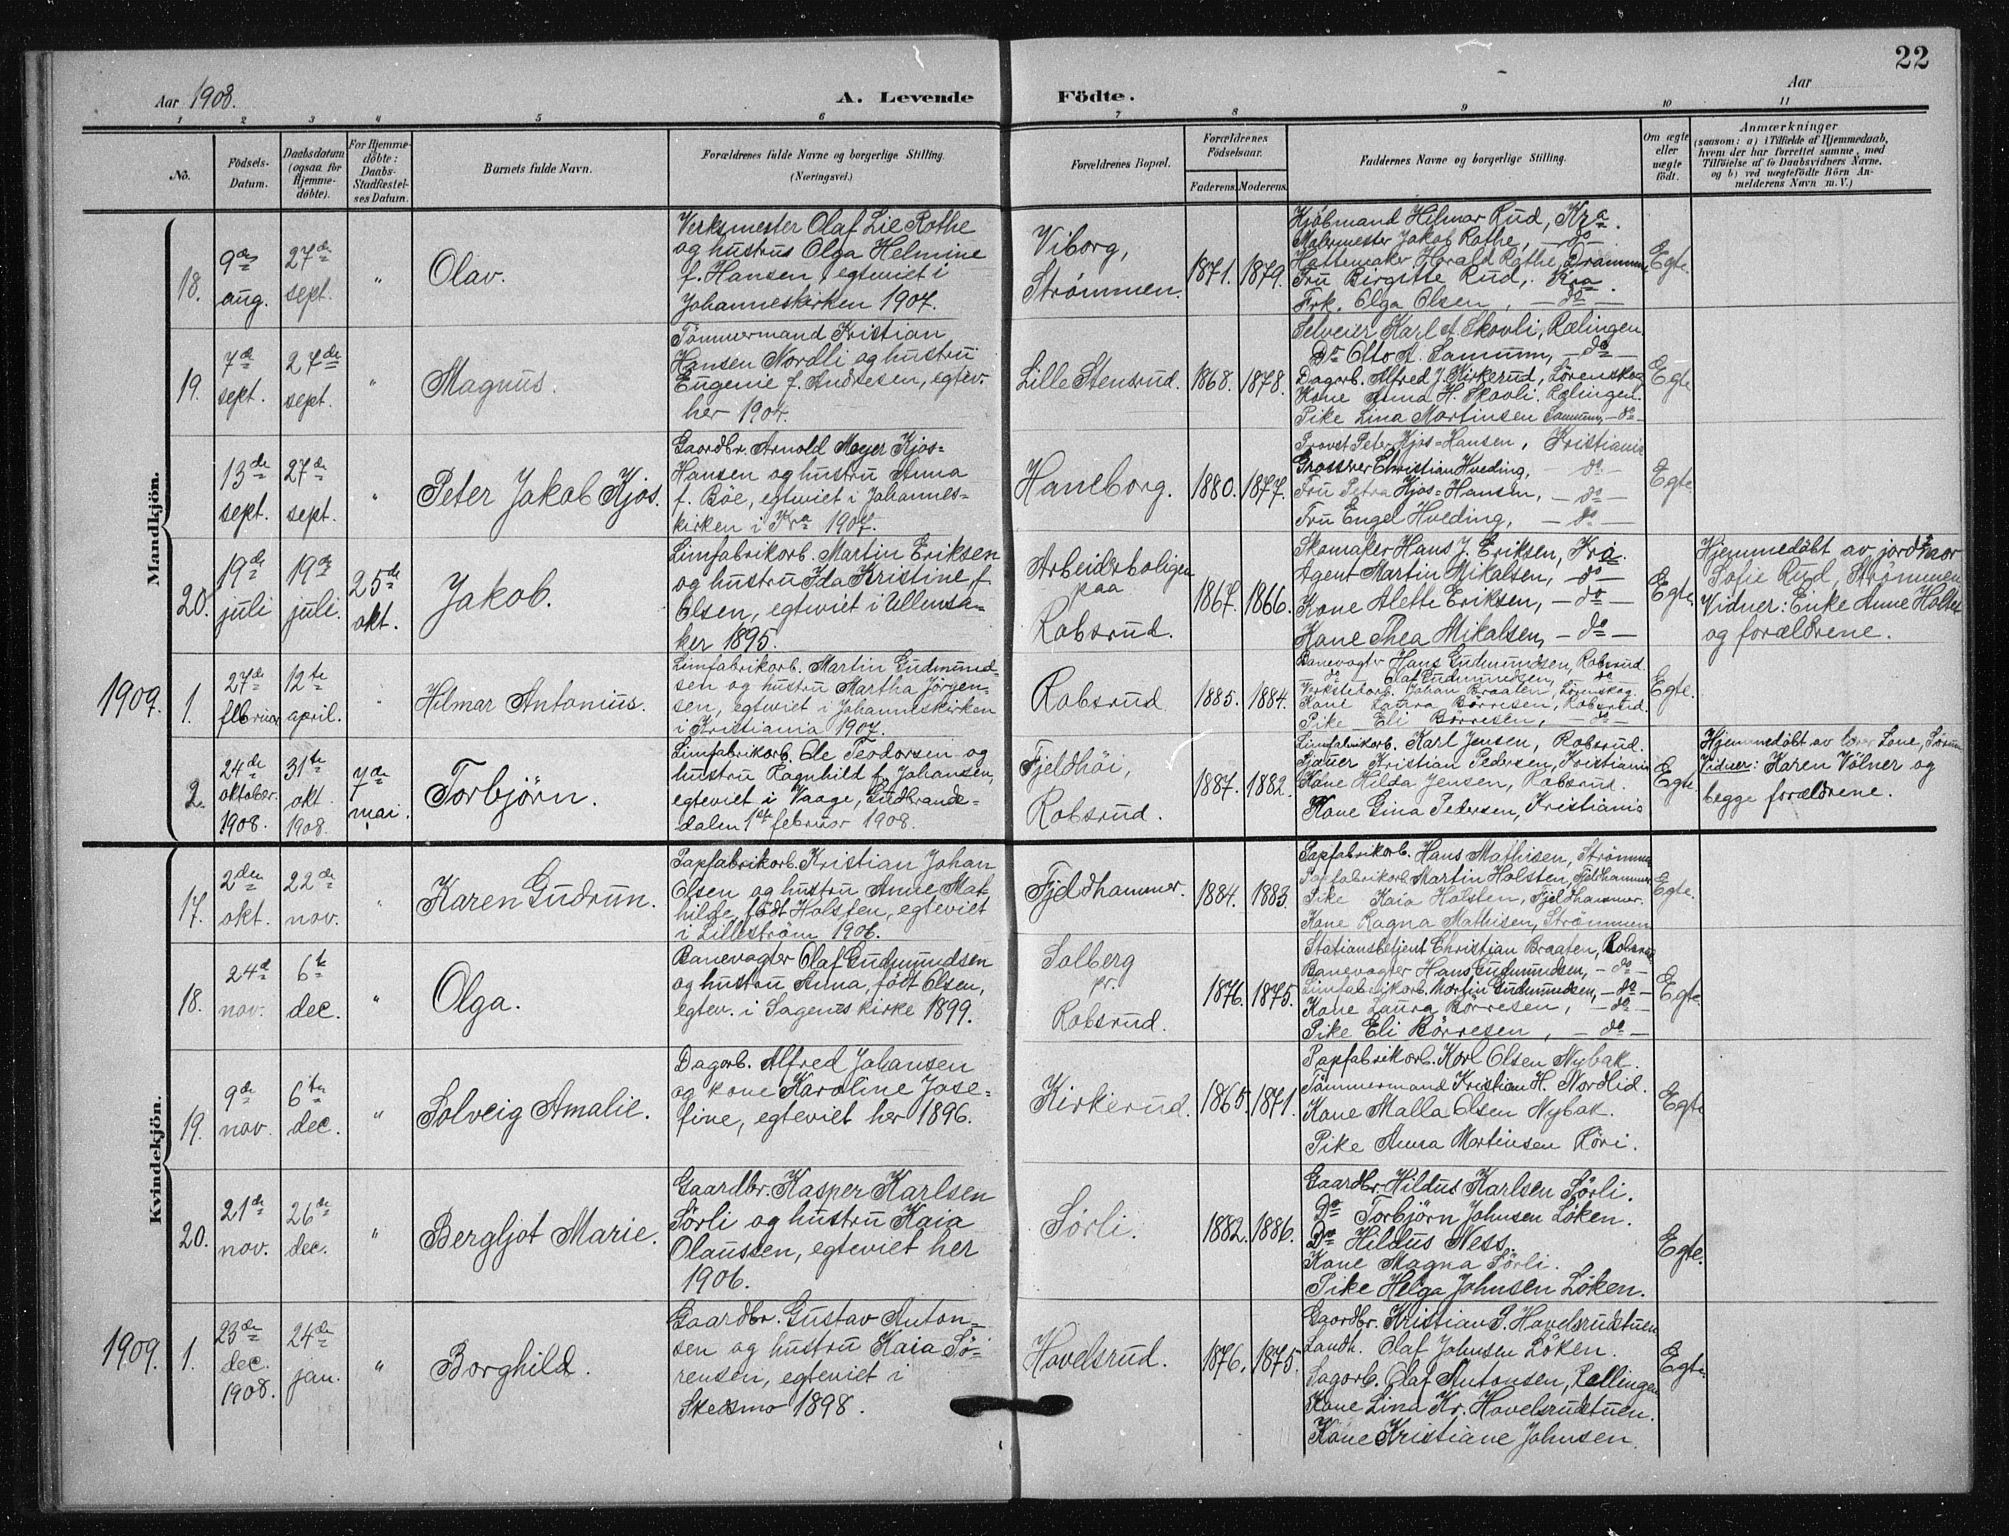 22
Aar 1908.
A. Levende Födte.
Aar
1 2 3 4 5 6 7 8 9 10 11
No.
Födsels-
Datum.
Daabsdatum
(ogsaa for
Hjemme-
döbte).
For Hjemme-
döbte:
Daabs-
Stadfæstel-
ses Datum.
Barnets fulde Navn.
Forældrenes fulde Navne og borgerlige Stilling.
(Næringsvei.)
Forældrenes Bopæl.
Forældrenes
Födselsaar.
Faderens. Moderens.
Faddernes Navne og borgerlige Stilling.
Om ægte
eller
uægte
födt.
Anmærkninger
(saasom: a) i Tilfælde af Hjemmedaab,
hvem der har forrettet samme, med
Tilföielse af to Daabsvidners Navne,
og b) ved uægtefödte Börn An-
melderens Navn m. V.)
Mandkjön.
18.
9de
aug.
27de
sept.
"
Olav.
Verksmester Olaf Lie Rothe
og hustrus Olga Helmine
f. Hansen, egteviet i
Johanneskirken 1907.
Viborg,
Strømmen.
1871. 1879.
Kjøbmand Hilmar Rud, Kra.
Malermester Jakob Rothe, — do —
Hattemaker Harald Rothe, Drammen
Fru Birgitte Rud, Kra.
Frk. Olga Olsen, — do —
Egte.
19.
7de
sept.
27de
sept.
"
Magnus.
Tömmermand Kristian
Hansen Nordli og hustru
Eugenie f. Andresen, egtev.
her 1904.
Lille Stensrud.
1868. 1878.
Selveier Karl A. Skovli, Rælingen
Do Otto A. Samuum, — do —
Dagarb. Alfred J. Kirkerud, Lørenskog
Kone Anna H. Skovli, Rælingen.
Pike Lina Martinsen Samuum, — do —
Egte.
20.
13de
sept.
27de
sept.
"
Peter Jakob Kjos.
Gaardbr. Arnold Meyer Kjos-
Hansen og hustru Anna
f. Böe, egteviet i Johannes-
kirken i Kra 1907.
Haneborg.
1880. 1877.
Provst Peter Kjos-Hansen, Kristiania
Grosserer Christian Hveding, — do —
Fru Petra Kjos-Hansen, — do —
Fru Engel Hveding, — do —
Egte
20.
19de
juli
19de
juli.
25de
okt.
Jakob.
Limfabrikarb. Martin Eriksen
og hustru Ida Kristine f.
Olsen, egteviet i Ullensa-
ker 1895.
Arbeiderboligen
paa
Robsrud.
1867. 1866.
Skomaker Hans J. Eriksen, Kra.
Agent Martin Mikalsen, — do —
Kone Alette Eriksen, — do —
Kone Thea Mikalsen, — do —
Egte.
Hjemmedöbt av jordmor
Sofie Rud, Strømmen
Vidner: Enke Anne Holter
og forældrene.
1909.
1.
27de
februar
12te
april.
"
Hilmar Antonius.
Limfabrikarb. Martin Gudmund-
sen og hustru Martha Jørgen-
sen, egteviet i Johanneskirken
i Kristiania 1907.
Robsrud.
1885. 1884.
Banevagter Hans Gudmundsen, Robsrud.
do Olaf Gudmundsen, do
Verkstedarb. Johan Braaten, Lørenskog.
Kone Laura Børresen, Robsrud.
Pike Eli Børresen, — do —
Egte.
2.
24de
oktober
1908.
31te
okt.
1908.
7de
mai.
Torbjörn.
Limfabrikarb. Ole Teodorsen og
hustru Ragnhild f. Johansen,
egteviet i Vaage, Gudbrands-
dalen 1ste februar 1908.
Fjeldhöi,
Robsrud.
1887. 1882.
Limfabrikarb. Karl Jensen, Robsrud.
Sjauer Kristian Pedersen, Kristiania
Kone Hilda Jensen, Robsrud.
Kone Gina Pedersen, Kristiania
Egte
Hjemmedöbt av lærer Lone, Sørum
Vidner: Karen Völner og
begge forældrene.
Kvindekjön.
17.
2den
okt.
22de
nov.
"
Karen Gudrun.
Papfabrikarb. Kristian Johan
Olsen og hustru Anne Mat-
hilde, födt Holsten, egteviet
i Lilleström 1906.
Fjeldhammer.
1884. 1883.
Papfabrikarb. Hans Mathisen, Strømmen
Papfabrikarb. Martin Holsten, Fjeldhammer
Pike Kaia Holsten, Fjeldhammer.
Kone Ragna Mathisen, Strømmen
Egte.
18.
24de
nov.
6te
dec.
"
Olga.
Banevagter Olaf Gudmundsen
og hustru Anna, födt Olsen,
egtev. i Sagenes kirke 1899.
Solberg
pr.
Robsrud.
1876. 1875.
Stationsbetjent Christian Braaten, Robsrud
Banevagter Hans Gudmundsen, — do —
Limfabrikarb. Martin Gudmundsen, — do —
Kone Laura Børresen, — do —
Pike Eli Børresen, — do —
Egte.
19.
9de
nov.
6te
dec.
"
Solveig Amalie.
Dagarb. Alfred Johansen
og kone Karoline Jose-
fine, egteviet her 1896.
Kirkerud.
1865. 1871.
Papfabrikarb. Karl Olsen Nybak.
Tömmermand Kristian H. Nordlid.
Kone Malla Olsen Nybak.
Pike Anna Martinsen Köri.
Egte
20.
21de
nov.
26de
dec.
"
Bergljot Marie.
Gaardbr. Kasper Karlsen
Sörli og hustru Kaia
Olaussen, egteviet her
1906.
Sörli.
1882. 1886.
Gaardbr. Hildus Karlsen Sörli.
Do Torbjörn Johnsen Löken.
Do Hildus Ness.
Kone Magna Sörli.
Pike Helga Johnsen Löken.
Egte.
1909.
1.
23de
dec.
1908.
24de
jan.
"
Borghild.
Gaardbr. Gustav Anton-
sen og hustru Kaia Sö-
rensen, egteviet i
Skedsmo 1898.
Hovelsrud.
1876. 1875.
Gaardbr. Kristian P. Hovelsrudstuen
Landh. Olaf Johnsen Löken.
Sagarb. Olaf Antonsen, Rællingen
Kone Lina Kr. Hovelsrudstuen.
Kone Kristiane Johnsen.
Egte.